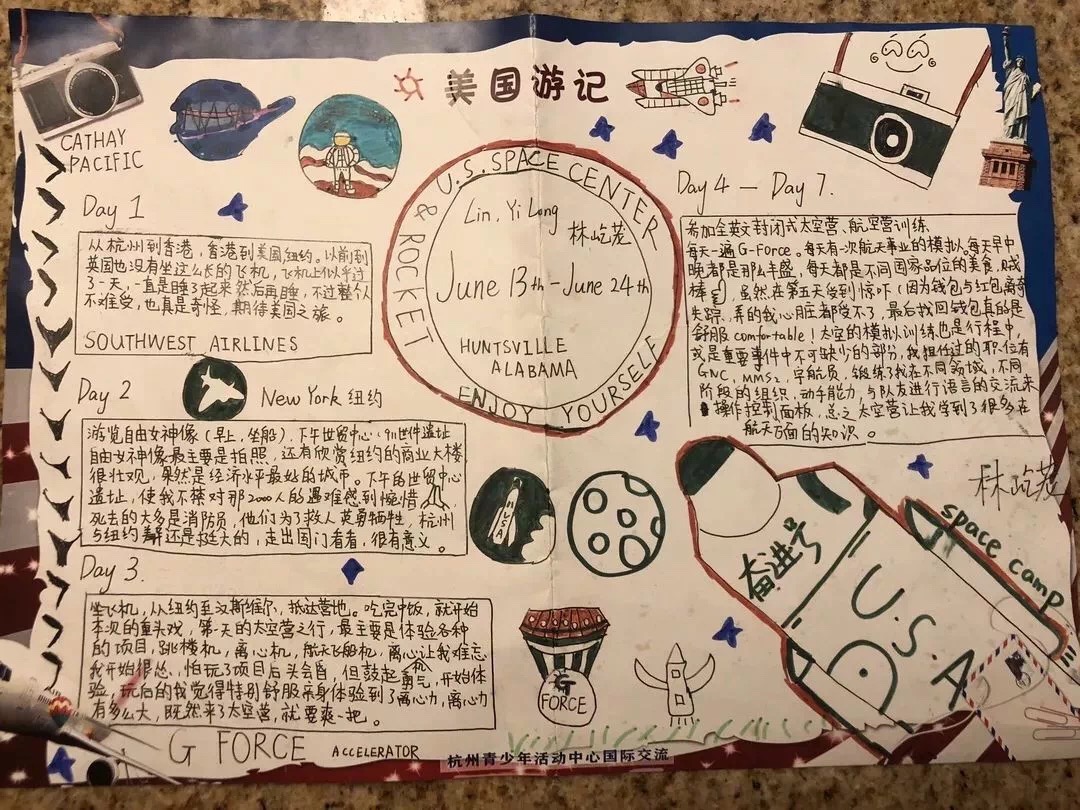 美国游记
CATHAY
PACIFIC
NASA
Day 1
从杭州到香港，香港到美国，纽约。以前到
英国也没有坐这么长的飞机，飞机上似乎过
了一天，一直是睡了起来然后再睡，不过整个人
不难受，也真是奇怪，期待美国之旅。
SOUTHWEST AIRLINES
Day 2
New York 纽约
游览自由女神像（早上，坐船），下午世贸中心，911世件遗址
自由女神像最主要是拍照，还有欣赏纽约的商业大楼
很壮观，果然是经济水平最好的城市。下午的世贸中心
遗址，使我不禁对那2000人的遇难感到惋惜
死去的大多是消防员，他们为了救人英勇牺牲，杭州
与纽约 还是挺大的，走出国门看看，很有意义。
Day 3.
坐飞机，从纽约至汉斯维尔，抵达营地。吃完中饭，就开始
本次的重头戏，第一天的太空营之行，最主要是体验各种
的项目，跳楼机，离心机，航天飞船机，离心机让我难忘
我开始很怂，怕玩了项目后头会昏，但鼓起勇气，开始体
验，玩后的我觉得特别舒服 身体验到了离心力，离心力
有多么大，既然来了太空营，就要爽一把。
G FORCE ACCELERATOR
U.S. SPACE CENTER
& ROCKET
Lin, Yi Long
林屹茏
June 13th - June 24th
HUNTSVILLE
ALABAMA
ENJOY YOURSELF
Day 4 — Day 7.
参加全英文封闭式太空营、航空营训练
每天一遍G-Force。每天有一次航天事业的模拟，每天早中
晚都是那么丰盛，每天都是不同国家品位的美食，贼
棒，虽然在第五天受到惊吓（因为钱包与红包离奇
失踪，弄的我心脏都受不了，最后找回钱包真的是
舒服 comfortable！太空的模拟训练也是行程中，
或是重要事件中不可缺少的部分，我担任过的职位有
GNC，MMS2，宇航员，锻练了我在不同领域，不同
阶段的组织，动手能力，与队友进行语言的交流来
操作控制面板，总之，太空营让我学到了很多在
航天方面的知识。
林屹茏
NASA
奋进号
U.S.A
space camp
G
FORCE
杭州青少年活动中心国际交流